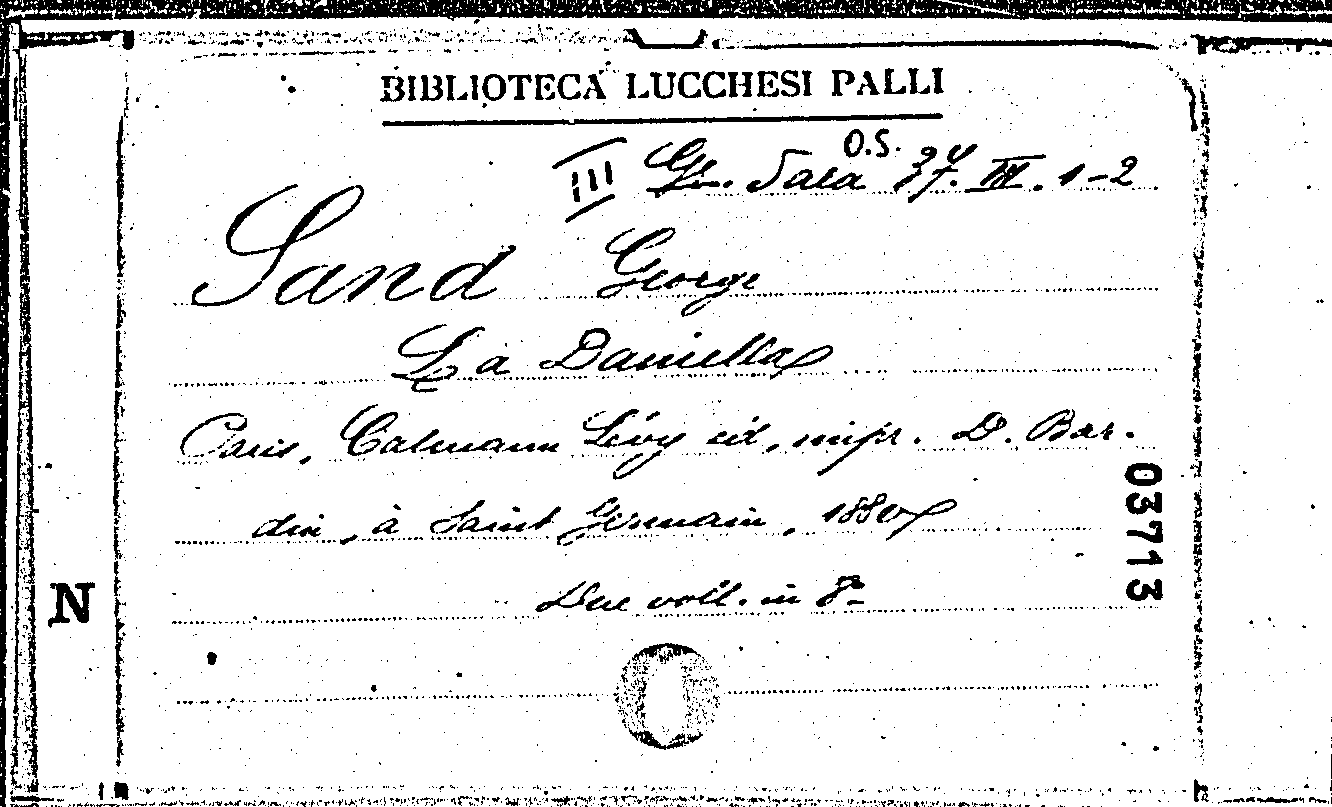 BIBLIOTECA LUCCHESI PALLI
O.S.
III Gr. Sala 24. III. 1-2
Sand George
La Daniella
Paris, Calmann Lévy éd, impr. D. Bar.
din, à Saint Germain, 1880
Due voll. in 8º
03713
N